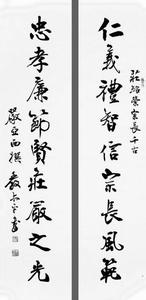 莊紹榮宗長千古
仁義禮智信宗長風範
忠孝廉節賢莊嚴之光
嚴立西撰